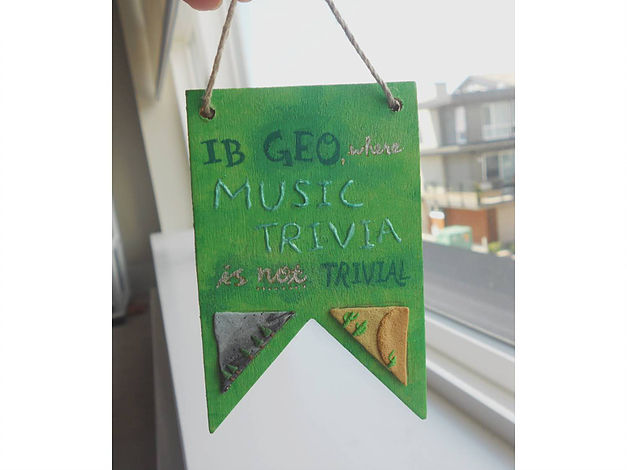 IB GEO, where
MUSIC
TRIVIA
is not TRIVIAL